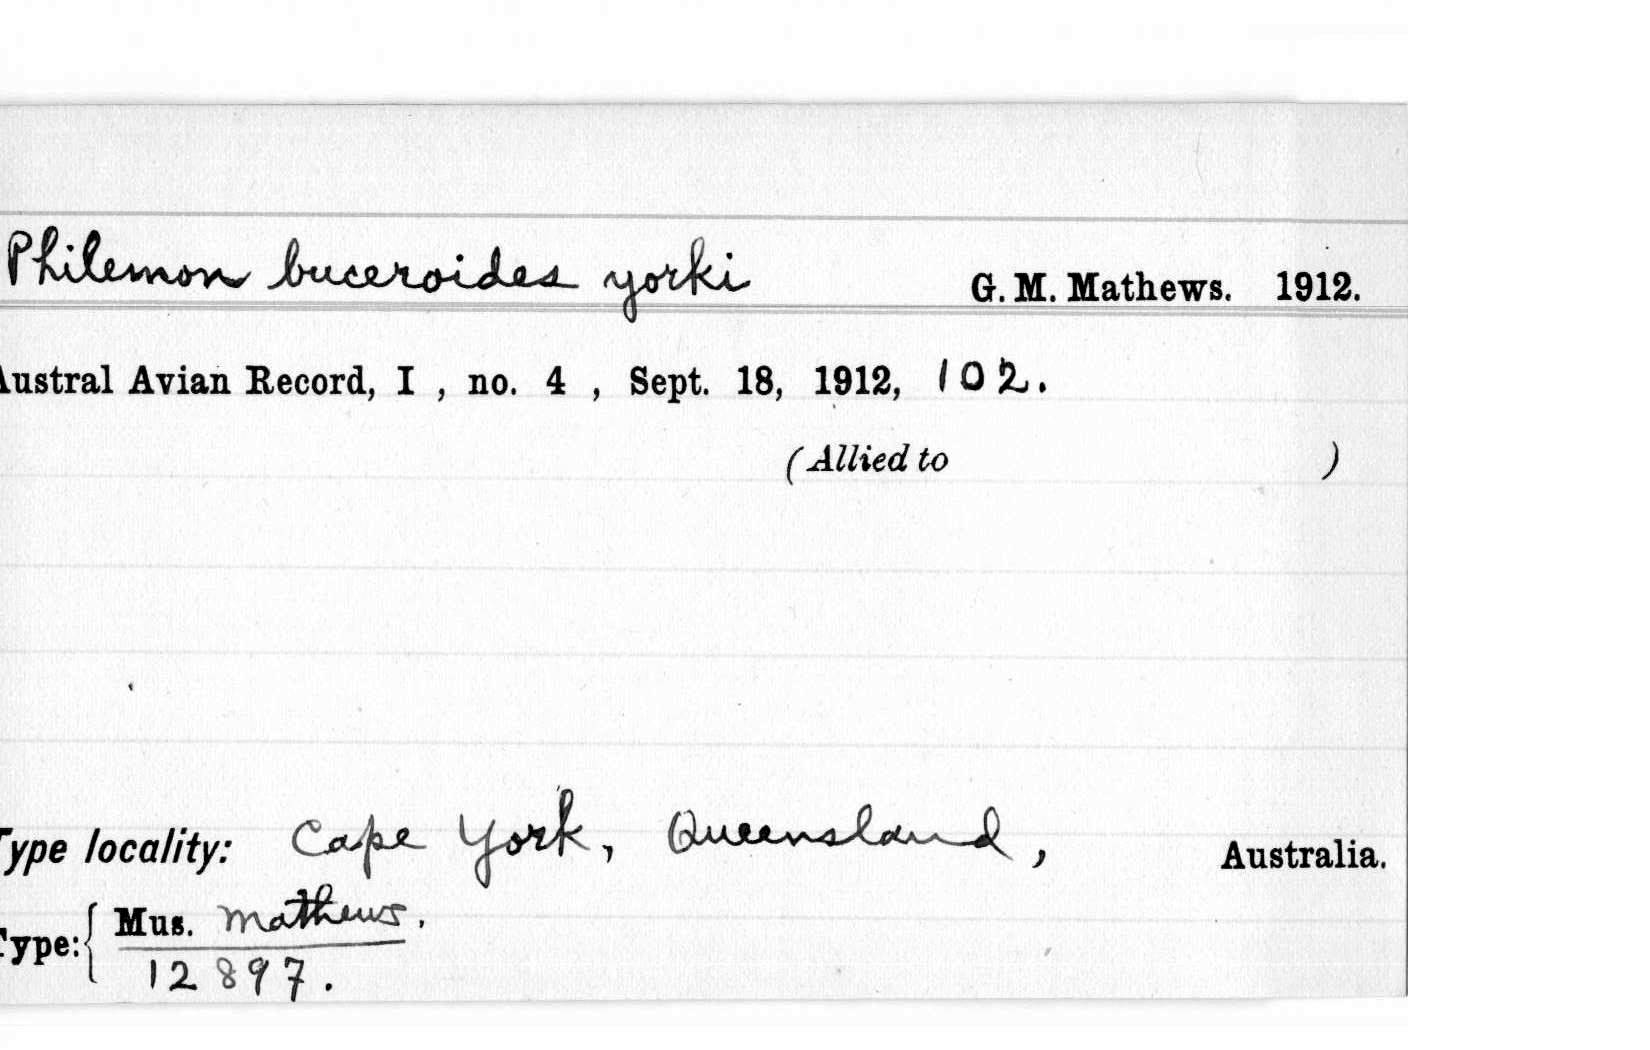 Philemon buceroides yorki G. M. Mathews. 1912.
Austral Avian Record, I , no. 4 , Sept. 18, 1912, 102.
(Allied to )
Type locality: Cape York, Queensland, Australia.
Type: { Mus. Mathews.
12897.